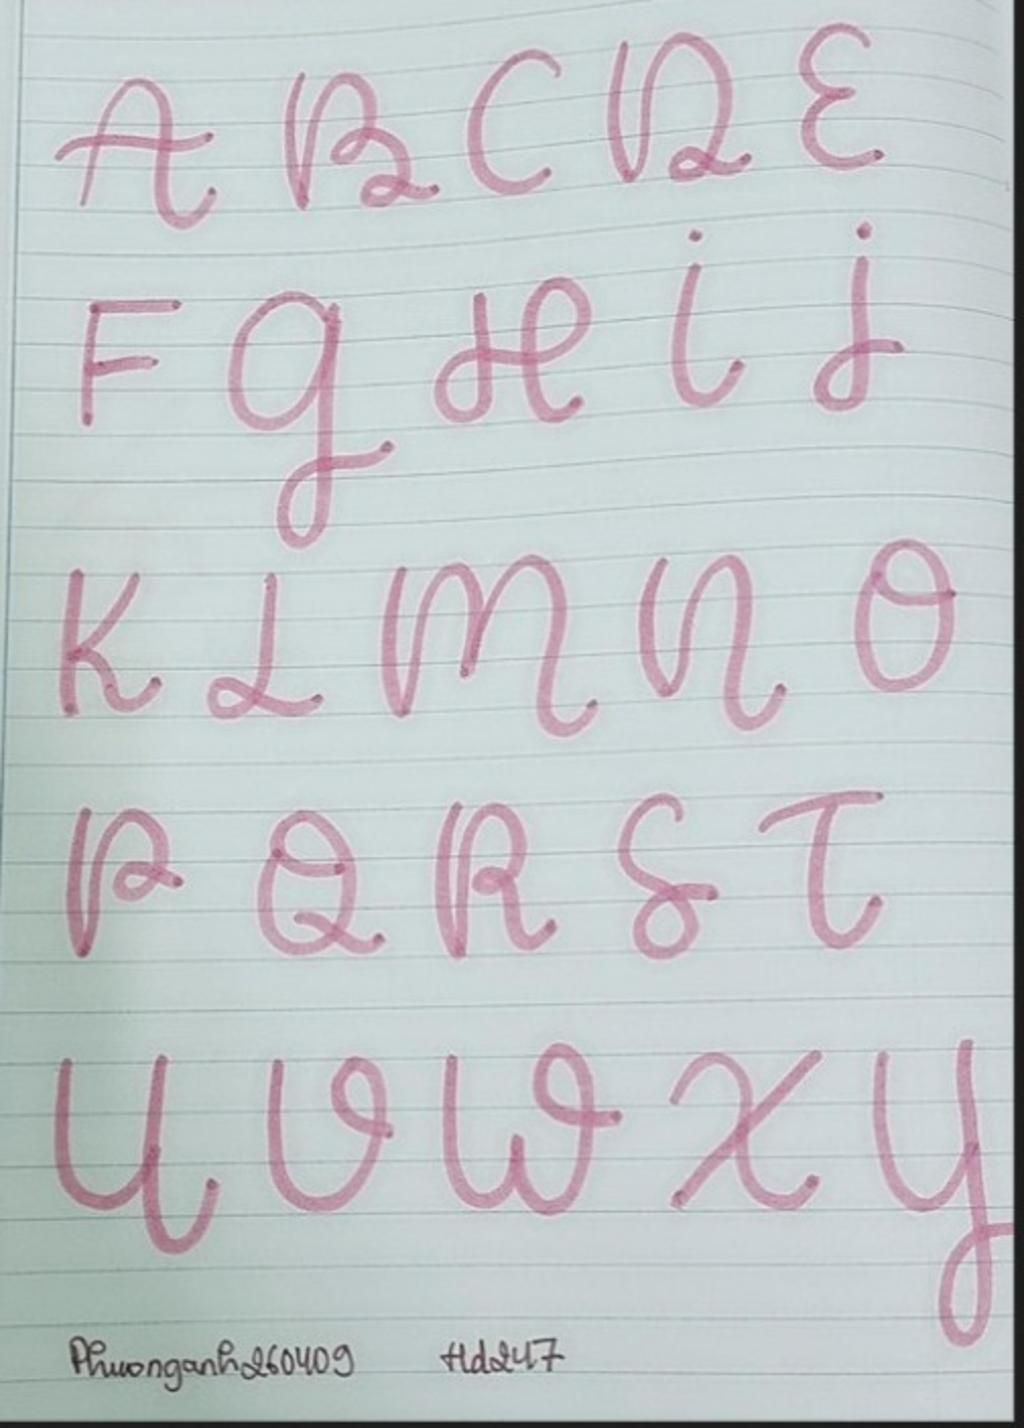 A B C D E
F g H i j
K L M N O
P Q R S T
U V W X y
Phuonganh260409 Hd247